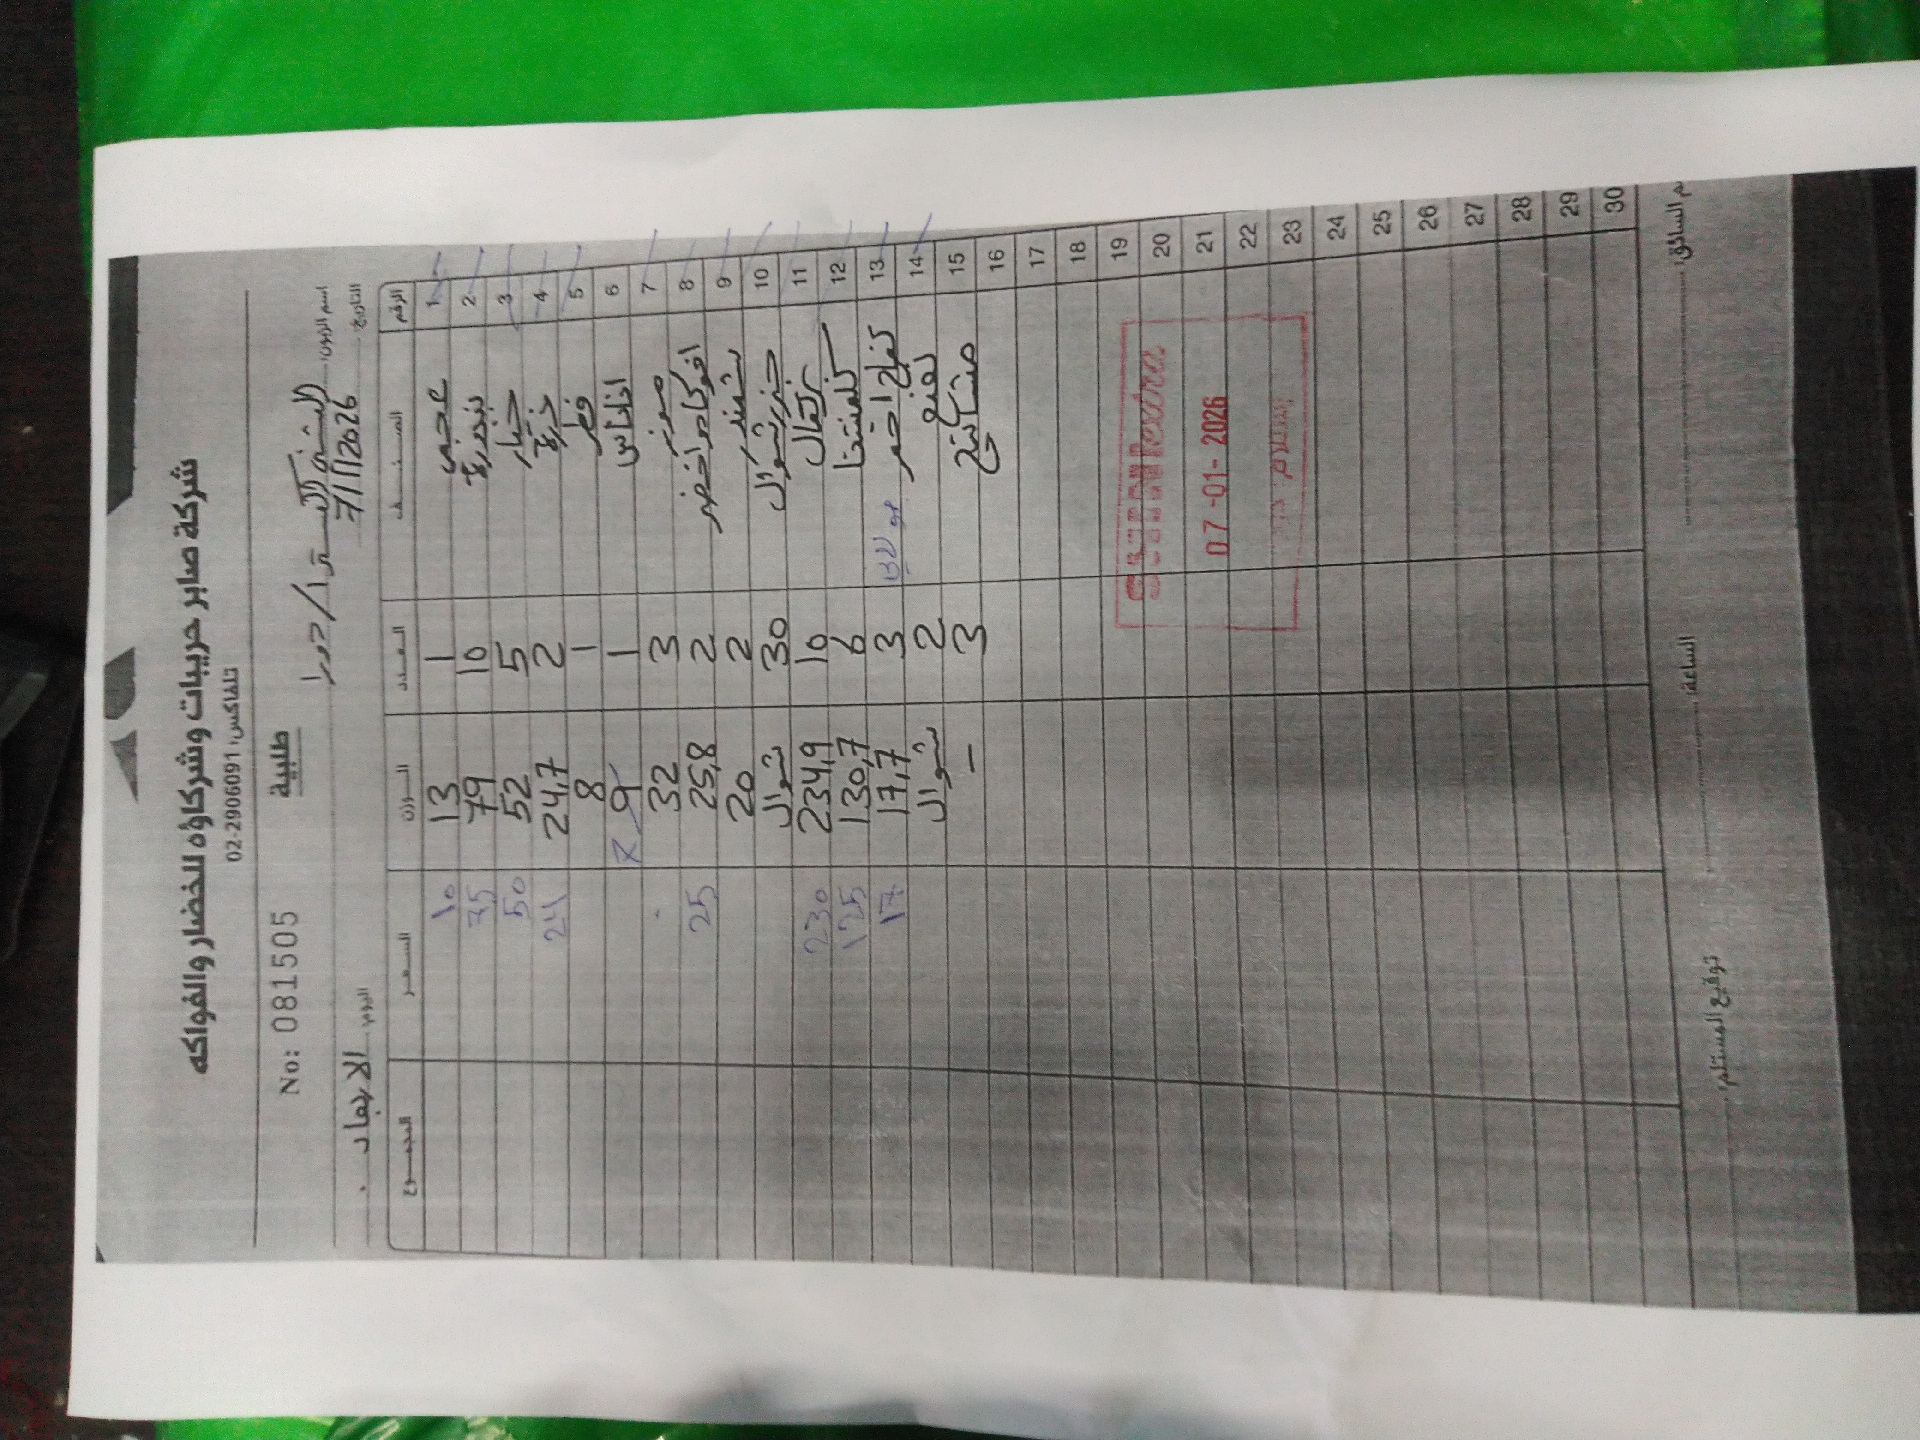 شركة صابر حريبات وشركاؤه للخضار والفواكه
تلفاكس: 02-2906091
طلبية
No: 081505
اسم الزبون: السنتر اكسترا / دورا
التاريخ: 7/1/2026 اليوم: الاربعاء
الرقم الصنف العدد الوزن السعر المجموع
1 عجمي 1 13 10
2 بندورة 10 79 75
3 خيار 5 52 50
4 خزق 2 24,7 24
5 فطر 1 8
6 اناناس 1 9 7
7 3 32
8 افوكادو اخضر 2 25,8 25
9 شمندر 2 20
10 جزر شوال 30 شوال
11 برتقال 10 234,9 230
12 كلمنتينا 6 130,7 125
13 تفاح اخضر 3 17,7 17
14 لفت 2 شوال
15 3 –
16
17
18
19
20
21
22
23
24
25
26
27
28
29
30
extra
07-01-2026
استلام
م السائق:
الساعة:
توقيع المستلم: